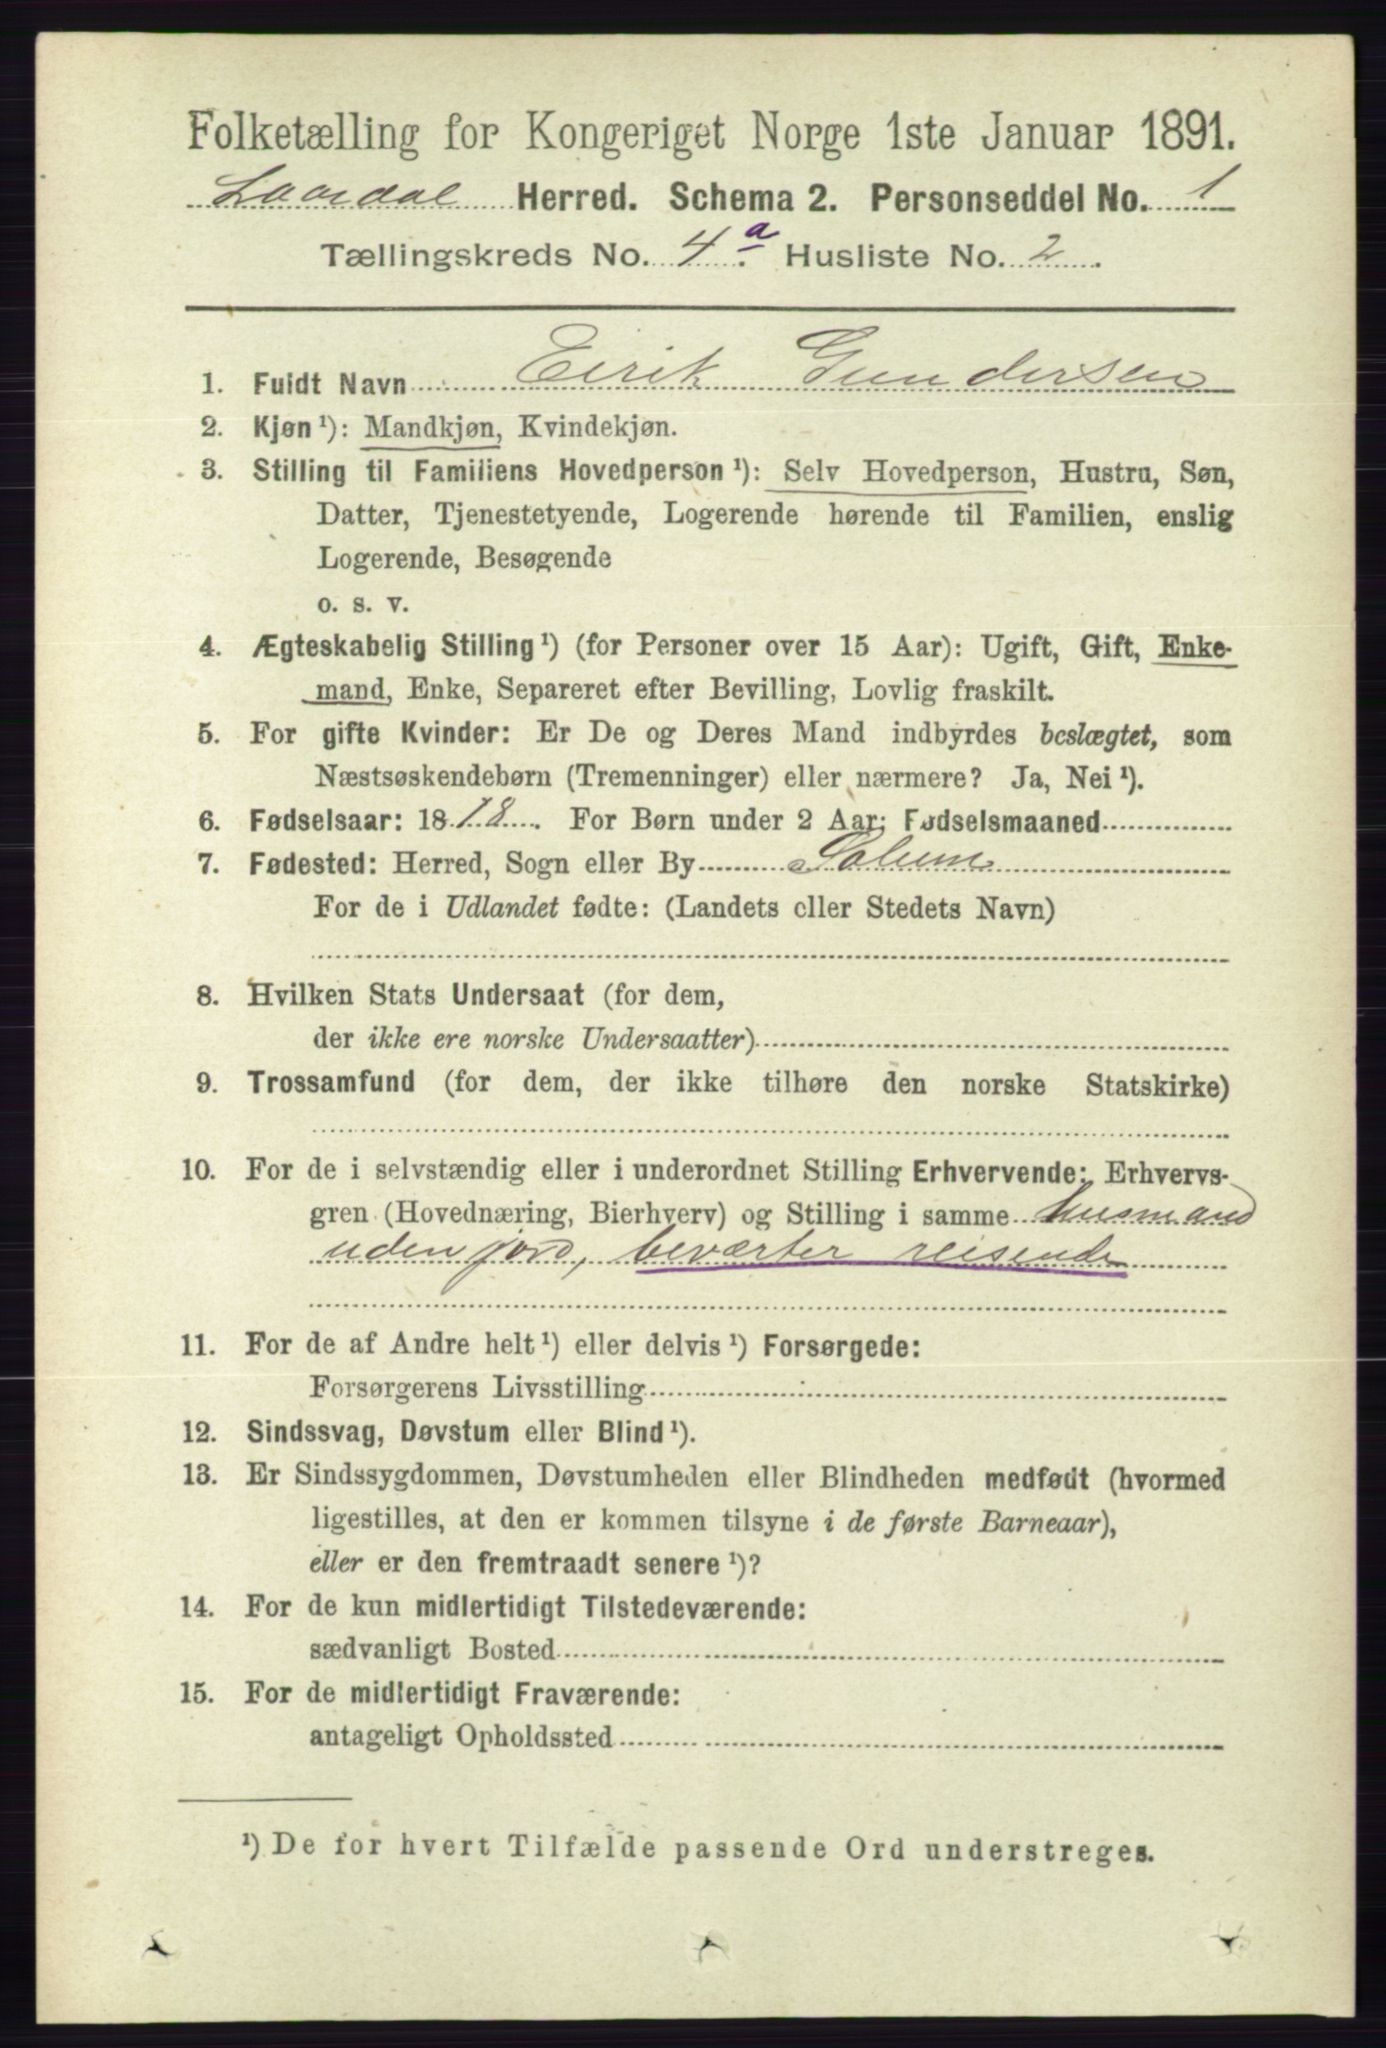 Folketælling for Kongeriget Norge 1ste Januar 1891.
Laardal Herred. Schema 2. Personseddel No. 1
Tællingskreds No. 4 a. Husliste No. 2.
1. Fuldt Navn Eirik Gundersen
2. Kjøn ¹): Mandkjøn, Kvindekjøn.
3. Stilling til Familiens Hovedperson ¹): Selv Hovedperson, Hustru, Søn,
Datter, Tjenestetyende, Logerende hørende til Familien, enslig
Logerende, Besøgende
o. s. v.
4. Ægteskabelig Stilling ¹) (for Personer over 15 Aar): Ugift, Gift, Enke-
mand, Enke, Separeret efter Bevilling, Lovlig fraskilt.
5. For gifte Kvinder: Er De og Deres Mand indbyrdes beslægtet, som
Næstsøskendebørn (Tremenninger) eller nærmere? Ja, Nei ¹).
6. Fødselsaar: 1818. For Børn under 2 Aar: Fødselsmaaned
7. Fødested: Herred, Sogn eller By Solum
For de i Udlandet fødte: (Landets eller Stedets Navn)
8. Hvilken Stats Undersaat (for dem,
der ikke ere norske Undersaatter)
9. Trossamfund (for dem, der ikke tilhøre den norske Statskirke)
10. For de i selvstændig eller i underordnet Stilling Erhvervende: Erhvervs-
gren (Hovednæring, Bierhverv) og Stilling i samme husmand
uden jord, beværter reisende
11. For de af Andre helt ¹) eller delvis ¹) Forsørgede:
Forsørgerens Livsstilling
12. Sindssvag, Døvstum eller Blind ¹).
13. Er Sindssygdommen, Døvstumheden eller Blindheden medfødt (hvormed
ligestilles, at den er kommen tilsyne i de første Barneaar),
eller er den fremtraadt senere ¹)?
14. For de kun midlertidigt Tilstedeværende:
sædvanligt Bosted
15. For de midlertidigt Fraværende:
antageligt Opholdssted
¹) De for hvert Tilfælde passende Ord understreges.